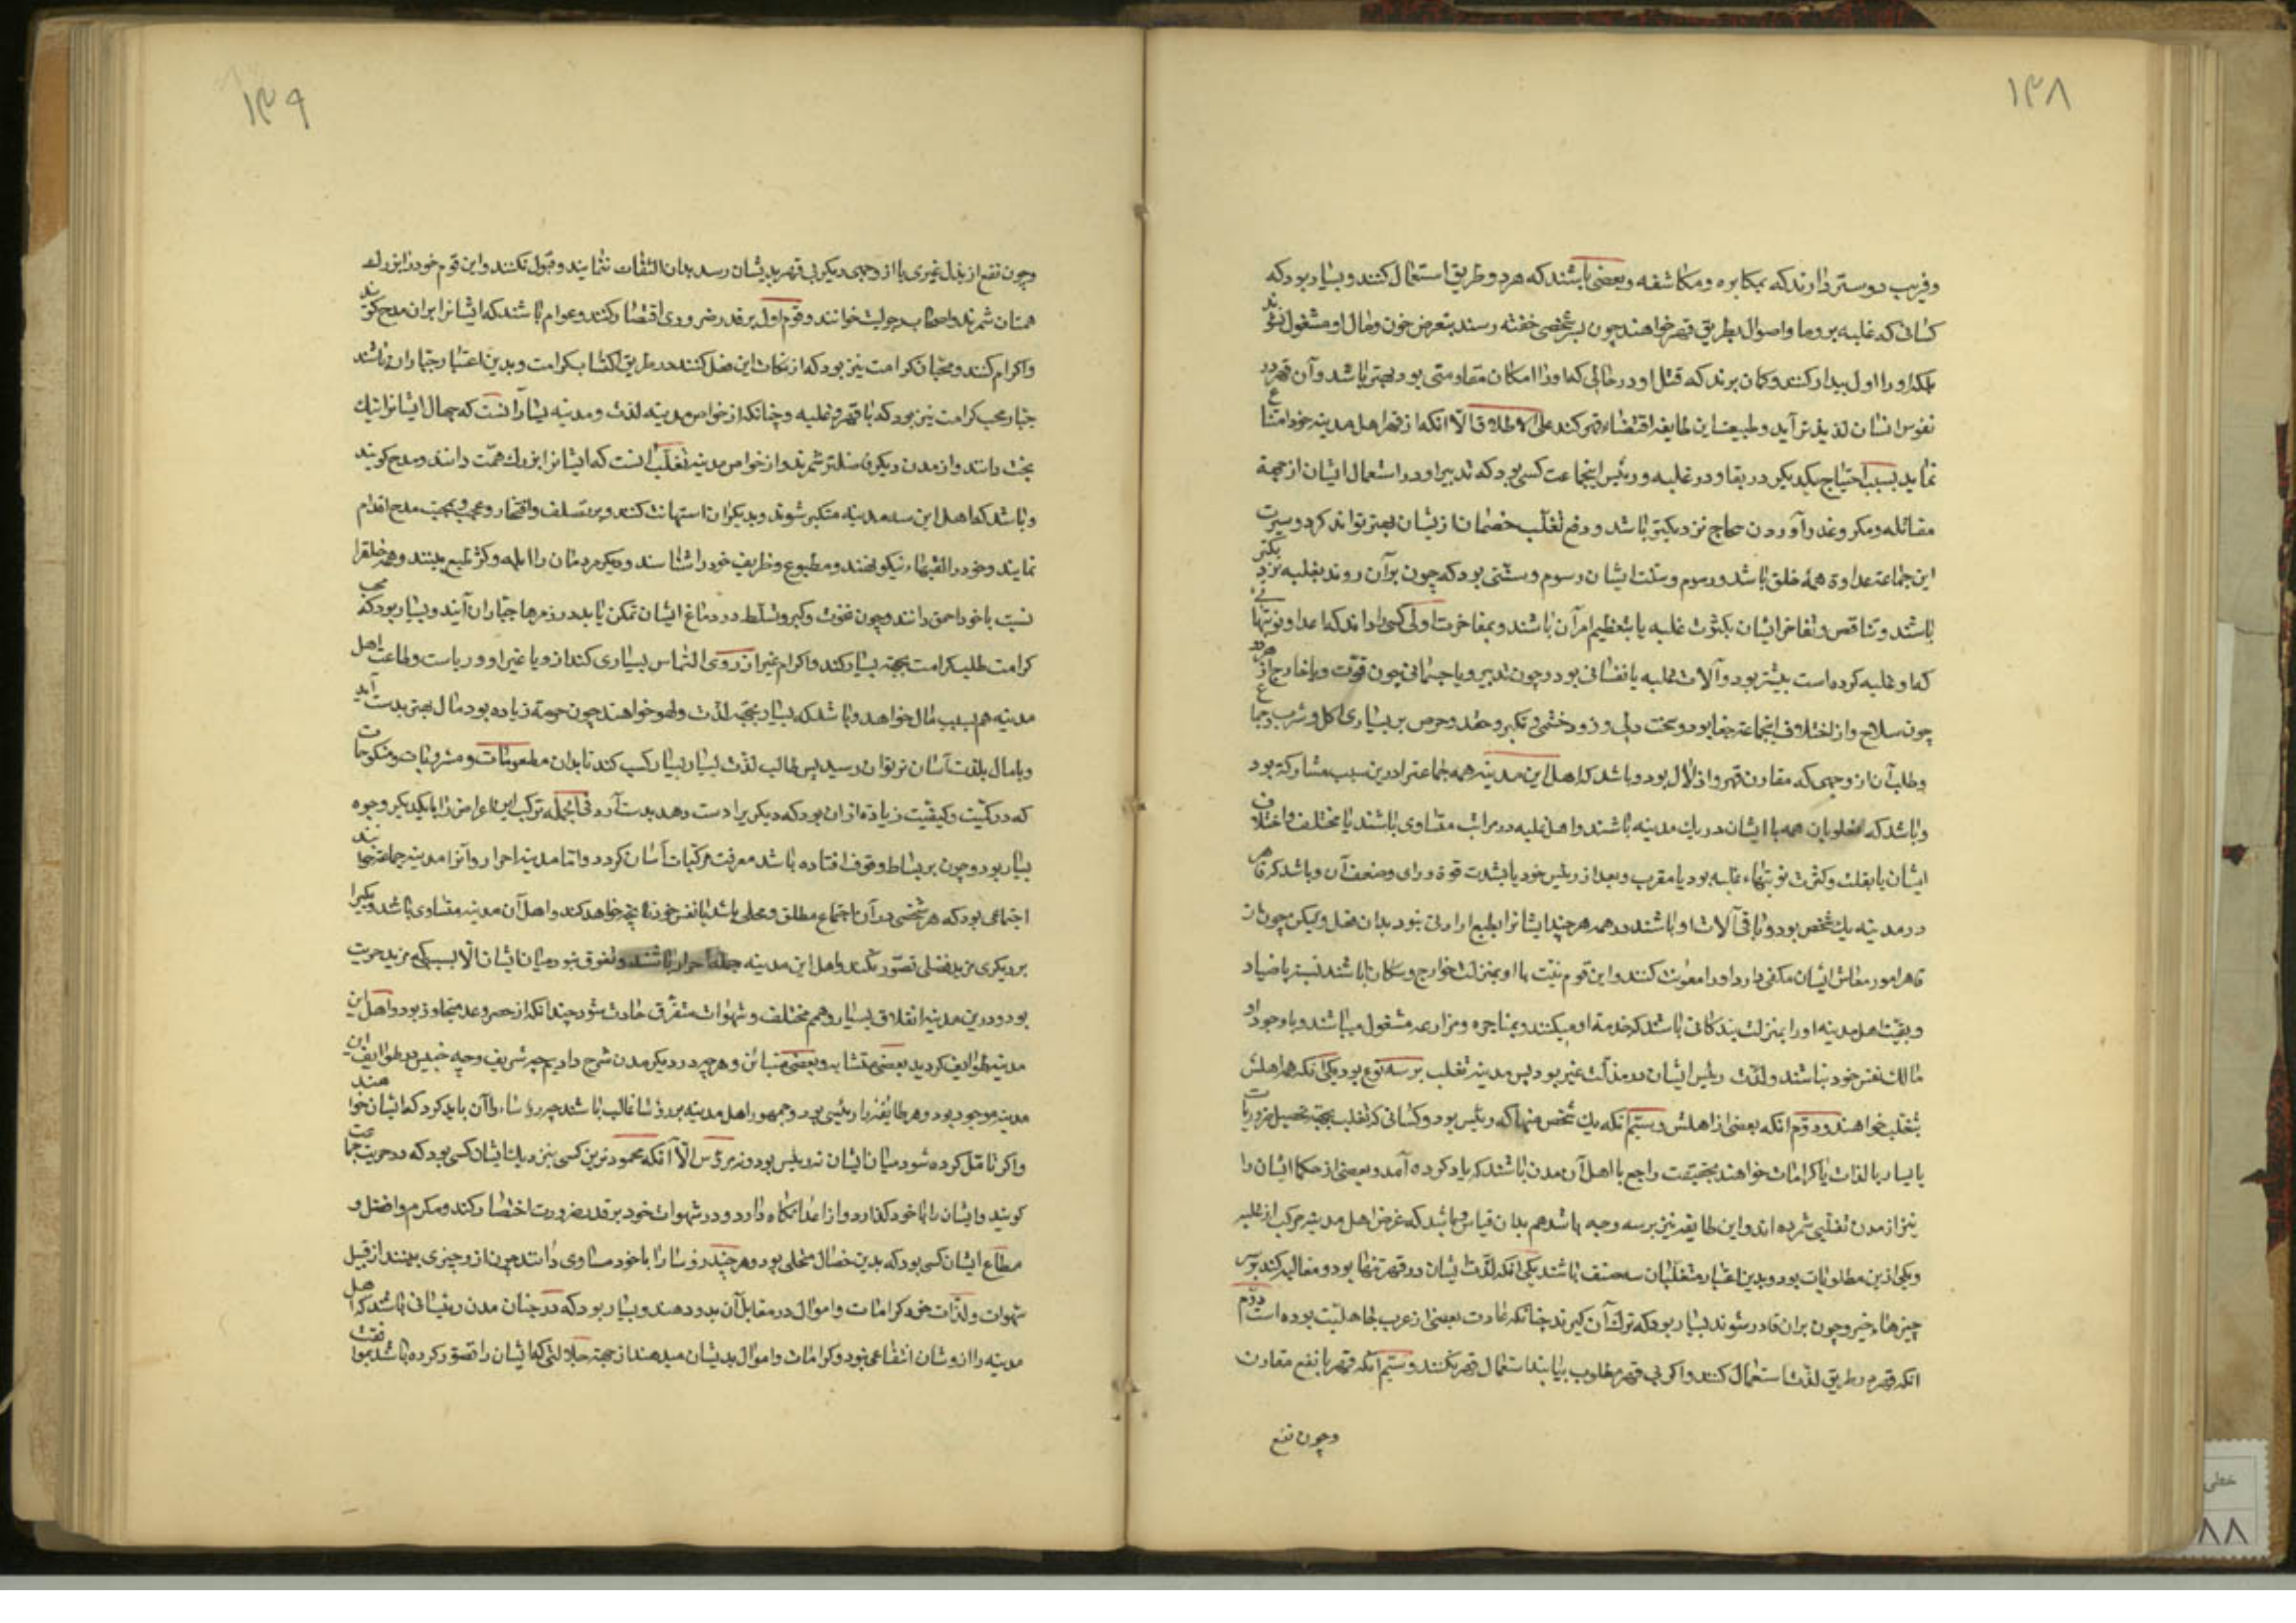 ۱۳۸
وفریب دوستر دارند که بمکابره ومکاشفه وبعضی باشند که هر دو طریق استعمال کنند وبسیار بود که
کسانی که غلبه بر دما واموال بطریق قهر خواهند چون بر شخصی خفته رسند بتعرض خون ومال او مشغول نشوند
بلکه او را اول بیدار کنند وکمان برند که قتل او در حالی که او را امکان مقاومتی بود بهتر باشد وآن قهر در
نفوس ایشان لذیذتر آید وطبیعت این طایفه اقتضاء قهر کند علی الاطلاق الّا انکه از قهر اهل مدینه خود امتناع
نمایند بسبب احتیاج بیکدیکر در بقا ودر غلبه ورئیس اینجماعت کسی بود که تدبیر او در استعمال ایشان از جهة
مقاتله ومکر وغدر آوردن بنجاح نزدیکتر باشد ودفع تغلّب خصمان ازیشان بهتر تواند کرد وسیرت
این جماعة عداوة همهٔ خلق باشد ورسوم وسنّت ایشان رسوم وسنّتی بود که چون برآن روند بغلبه نزدیکتر
باشند وتنافس وتفاخر ایشان بکثرت غلبه یا بتعظیم امر آن باشند وبمفاخرت اولی کسی را دانند که اعداد نوبتهائی
که او غلبه کرده است بیشتر بود وآلات غلبه یا نفسانی بود وچون تدبیر ویا جسمانی چون قوّت ویا خارج از هر دو
چون سلاح واز اخلاق اینجماعة جفا بود وسخت دلی وزود خشمی وتکبر وحقد وحرص بر بسیاری اکل وشرب وجماع
وطلب آن از وجهی که مقارن قهر واذلال بود وباشد که اهل این مدینه همه جماعة را درین سبب مشارکة بود
وباشد که مغلوبان هم با ایشان در یك مدینه باشند واهل غلبه در مراتب متساوی باشند یا مختلف واختلاف
ایشان یا بقلت وکثرت نوبتهاء غلبه بود یا مقرب وبعد از رئیس خود یا بشدت قوة ورای وضعف آن وباشد که قاهر
در مدینه یك شخص بود وباقی آلات او باشند در قهر هر چند ایشانرا بطبع ارادتی نبود بدان فعل ولیکن چون آن
قاهر امور معاش ایشان مکفی دارد او را معونت کنند واین قوم نسبت با او بمنزلت جوارح وسکان باشند نسبت با صیاد
وبقیّت اهل مدینه او را بمنزلت بندکانی باشند که خدمة او میکنند وبمتاجره ومزارعه مشغول میباشند وبا وجود او
مالك نفس خود نباشند ولذّت رئیس ایشان در مذلّت غیر بود پس مدینه تغلب بر سه نوع بود یکی آنکه همه اهلش
تغلب خواهند ودوّم انکه بعضی از اهلش وسیّم انکه یك شخص تنها که رئیس بود وکسانی که تغلب بجهة تحصیل ضروریات
یا یسار یا لذات یا کرامات خواهند بحقیقت راجع با اهل آن مدن باشند که یاد کرده آمد وبعضی از حکما ایشان را
نیز از مدن تغلبی شمرده اند واین طایفه نیز بر سه وجه باشد هم بدان قیاس وباشد که غرض اهل مدینه مرکب از غلبه
ویکی ازین مطلوبات بود وبدین اعتبار متغلبان سه صنف باشند یکی آنکه لذّت ایشان در قهر تنها بود ومغالبه کنند بر سر
چیزهاء خسیس وچون بران قادر شوند بسیار بود که ترك آن کیرند چنانکه عادت بعضی از عرب جاهلیّت بوده است دوّم
انکه قهر در طریق لذّت استعمال کنند واکر بی قهر مطلوب بیابند استعمال قهر نکنند وسیّم آنکه قهر با نفع مقارن
وچون نفع
۱۳۹
وچون نفع از بذل غیری یا از وجهی دیکر بی قهر بدیشان رسد بدان التفات ننمایند وقبول نکنند واین قوم خود را بزرك
همتان شمرند واصحاب رجولیت خوانند وقوم اول بر قدر ضروری اقتصار کنند وعوام باشند که ایشانرا بران مدح کویند
واکرام کنند ومحبّان کرامت نیز بود که ارتکاب این فعل کنند در طریق اکتساب کرامت وبدین اعتبار جباران باشند
جبار محب کرامت نیز بود که با قهر وغلبه وچنانکه از خواص مدینه لذت ومدینه یسار آنست که جهال ایشانرا نیك
بخت دانند واز مدن دیکر فاضلتر شمرند واز خواص مدینه تغلّب آنست که ایشانرا بزرك همّت دانند ومدح کویند
وباشد که اهل این سه مدینه متکبر شوند وبدیکران استهانت کنند وبر تصلف وافتخار وعجب ومحبت مدح اقدام
نمایند وخود را لقبهاء نیکو نهند ومطبوع وظریف خود را شناسند ودیکر مردمان را ابله وکژ طبع بینند وهمه خلق را
نسبت با خود احمق دانند وچون نخوت وکبر وتسلّط در دماغ ایشان تمکن یابد در زمره جبّاران آیند وبسیار بود که محب
کرامت طلب کرامت بجهة یسار کند واکرام غیر از روی التماس یساری کند ازو یا غیر او وریاست وطاعت اهل
مدینه هم بسبب مال خواهد وباشد که یسار بجهة لذّت ولهو خواهند چون حرمة زیاده بود مال بهتر بدست آید
وبا مال بلذت آسان تر توان رسید پس طالب لذّت بسیار یسار کسب کند تا بدان مطعومات ومشروبات ومنکوحات
که در کمیّت وکیفیّت زیاده ازان بود که دیکر یرا دست دهد بدست آرد فی الجمله ترکب این اعراض را با یکدیکر وجوه
بسیار بود وچون بر بسایط وقوف افتاده باشد معرفت مرکبات آسان کردد وامّا مدینه احرار وآنرا مدینه جماعة خوانند
اجتماعی بود که هر شخصی در آن اجتماع مطلق ومخلی باشد با نفس خود تا آنچه خواهد کند واهل آن مدینه متساوی باشند ویکیرا
بر دیکری مزید فضلی تصوّر نکنند واهل این مدینه جمله احرار باشند وتفوق نبود میان ایشان الّا بسببی که مزید حریت
بود ودرین مدینه اختلاف بسیار وهمم مختلف وشهوات متفرّق حادث شود چندانکه از حصر وعد متجاوز بود واهل این
مدینه طوایف کردند بعضی متشابه وبعضی متباین وهر چه در دیکر مدن شرح دادیم چه شریف وچه خسیس در طوایف این
مدینه موجود بود وهر طایفه را رئیسی بود وجمهور اهل مدینه بر رؤسا غالب باشند چه رؤساء را آن باید کرد که ایشان خواهند
واکر تامّل کرده شود میان ایشان نه رئیس بود ونه مرؤس الّا آنکه محمودترین کسی بنزدیك ایشان کسی بود که در حریت جماعت
کوشد وایشان را با خود کذارد واز اعدا نکاه دارد ودر شهوات خود بر قدر ضرورت اختصار کند ومکرم وافضل و
مطاع ایشان کسی بود که بدین خصال متحلی بود وهر چند رؤسا را با خود مساوی دانند چون ازو چیزی بینند از قبیل
شهوات ولذّات خود کرامات واموال در مقابل آن بدو دهند وبسیار بود که در چنان مدن رئیسانی باشند که اهل
مدینه را ازیشان انتفاعی نبود وکرامات واموال بدیشان میدهند از جهة جلالتی که ایشان را تصوّر کرده باشند بموافقت